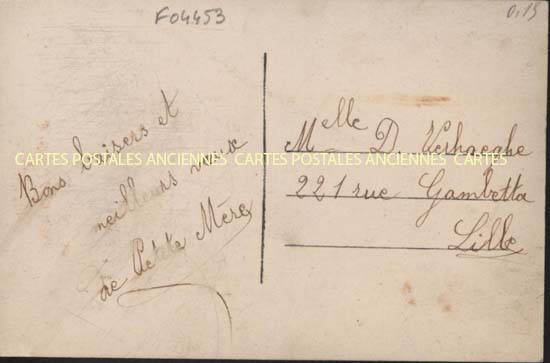 F04453
0,15
Bons baisers et
meilleurs vœux
de Petite Mère
Melle D.
221 rue Gambetta
Lille
CARTES POSTALES ANCIENNES CARTES POSTALES ANCIENNES CARTES